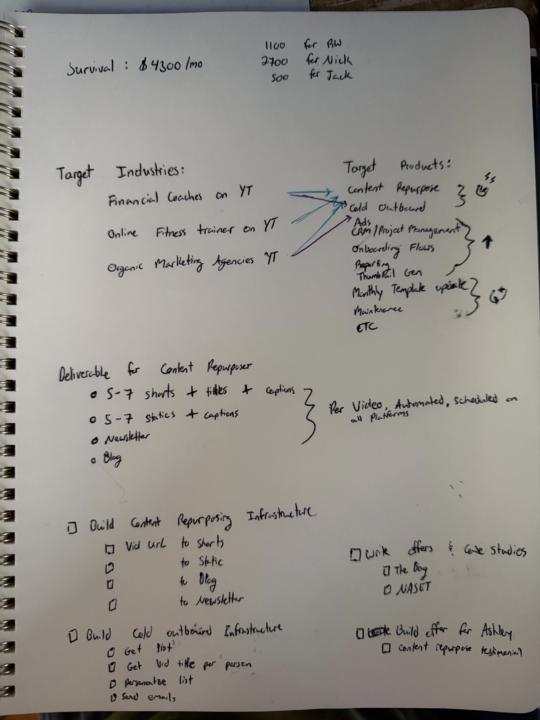 Survival : $4300/mo
1100 for BW
2700 for Nick
500 for Jack
Target Industries:
Financial Coaches on YT
Online Fitness trainer on YT
Organic Marketing Agencies YT
Target Products:
Content Repurpose
Cold Outbound
Ads
CRM/Project Management
Onboarding Flows
Reporting
Thumbnail Gen
Monthly Template update
Maintenance
ETC
Deliverable for Content Repurposer
5-7 shorts + titles + captions
5-7 statics + captions
Newsletter
Blog
Per Video, Automated, Scheduled on
all Platforms
Build Content Repurposing Infrastructure
Vid URL to shorts
to Static
to Blog
to Newsletter
Build Cold outbound Infrastructure
Get list
Get Vid title per person
Personalize list
Send emails
Write offers & Case Studies
The Bay
NASET
Build offer for Ashley
Content repurpose testimonial